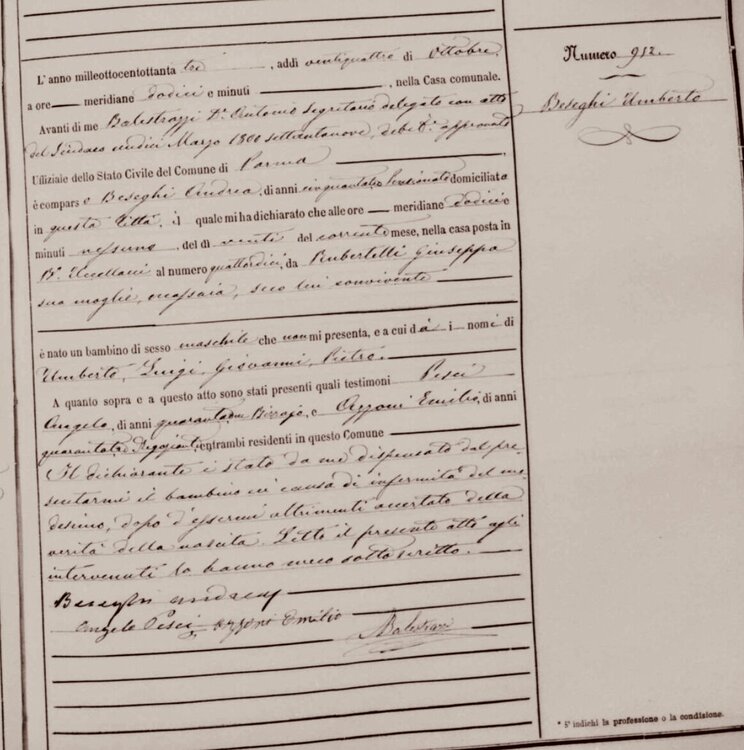 L'anno milleottocentottanta tre, addì ventiquattro di Ottobre,
a ore meridiane dodici e minuti, nella Casa comunale.
Avanti di me Balestrazzi Dr. Antonio Segretario delegato con atto
del Sindaco undici Marzo 1800 settantanove, debit. approvato
Uffiziale dello Stato Civile del Comune di Parma,
è compars o Beseghi Andrea, di anni cinquantatre Pensionato domiciliato
in questa Città, il quale mi ha dichiarato che alle ore meridiane dodici e
minuti nessuno, del dì venti del corrente mese, nella casa posta in
al numero quattordici, da Rubertelli Giuseppa
sua moglie, massaia, seco lui convivente
è nato un bambino di sesso maschile che non mi presenta, e a cui dà i nomi di
Umberto, Luigi, Giovanni, Pietro.
A quanto sopra e a questo atto sono stati presenti quali testimoni Pesci
Angelo, di anni e Azzoni Emilio, di anni
entrambi residenti in questo Comune
Il dichiarante è stato da me dispensato dal pre
sentarmi il bambino in causa di infermità del me
desimo, dopo d'essermi altrimenti accertato della
verità della nascita. Letto il presente atto agli
intervenuti lo hanno meco sottoscritto.
Beseghi Andrea
Angelo Pesci Azzoni Emilio Balestrazzi
Numero 912.
Beseghi Umberto
* S'indichi la professione o la condizione.